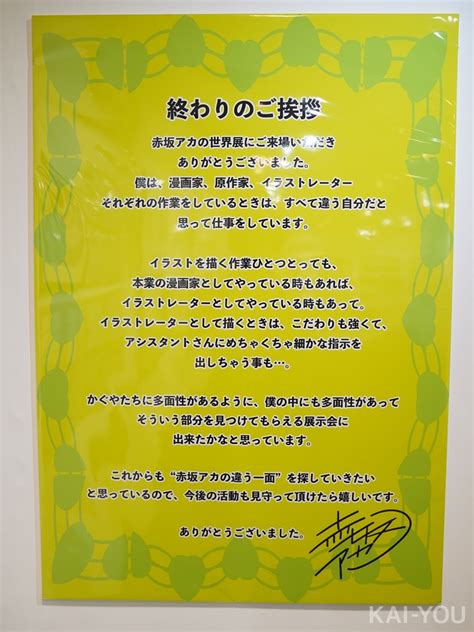 終わりのご挨拶
赤坂アカの世界展にご来場いただき
ありがとうございました。
僕は、漫画家、原作家、イラストレーター
それぞれの作業をしているときは、すべて違う自分だと
思って仕事をしています。
イラストを描く作業ひとつとっても、
本業の漫画家としてやっている時もあれば、
イラストレーターとしてやっている時もあって。
イラストレーターとして描くときは、こだわりも強くて、
アシスタントさんにめちゃくちゃ細かな指示を
出しちゃう事も…。
かぐやたちに多面性があるように、僕の中にも多面性があって
そういう部分を見つけてもらえる展示会に
出来たかなと思っています。
これからも“赤坂アカの違う一面”を探していきたい
と思っているので、今後の活動も見守って頂けたら嬉しいです。
ありがとうございました。
KAI-YOU